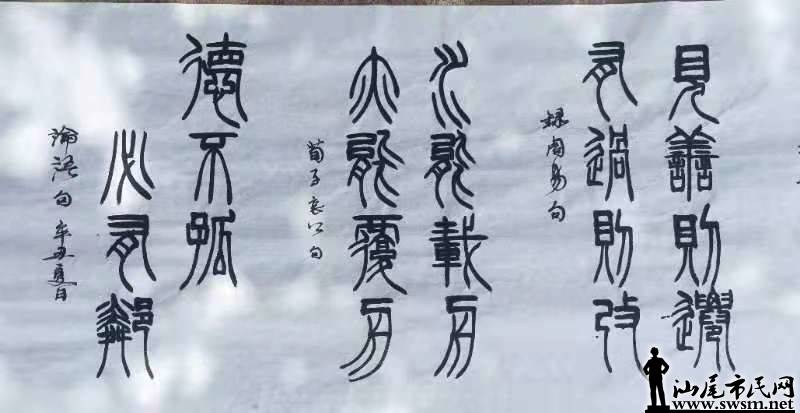 見善則遷
有過則改
錄周易句
水能載舟
亦能覆舟
荀子哀公句
德不孤
必有鄰
論語句 辛丑夏日
汕尾市民网
www.swsm.net